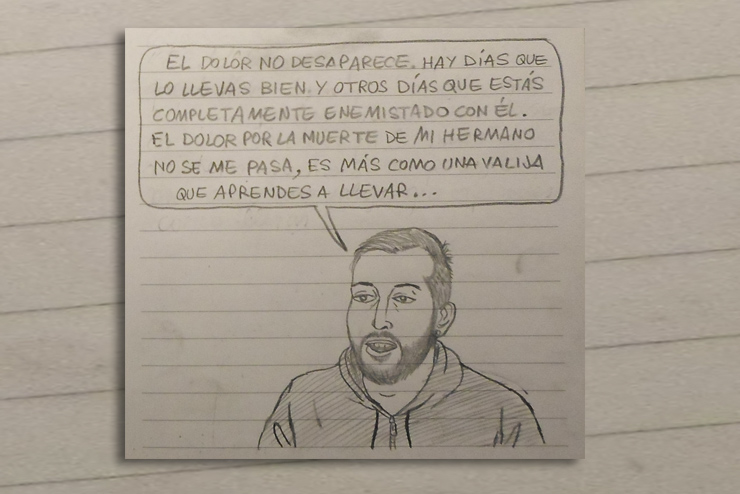 EL DOLOR NO DESAPARECE. HAY DÍAS QUE
LO LLEVAS BIEN Y OTROS DÍAS QUE ESTÁS
COMPLETAMENTE ENEMISTADO CON ÉL.
EL DOLOR POR LA MUERTE DE MI HERMANO
NO SE ME PASA, ES MÁS COMO UNA VALIJA
QUE APRENDES A LLEVAR...